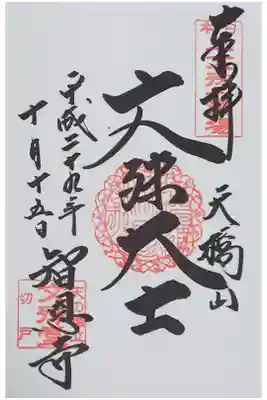 奉拝
天橋山
文殊大士
智恩寺
平成二十九年
十月十五日
切戸